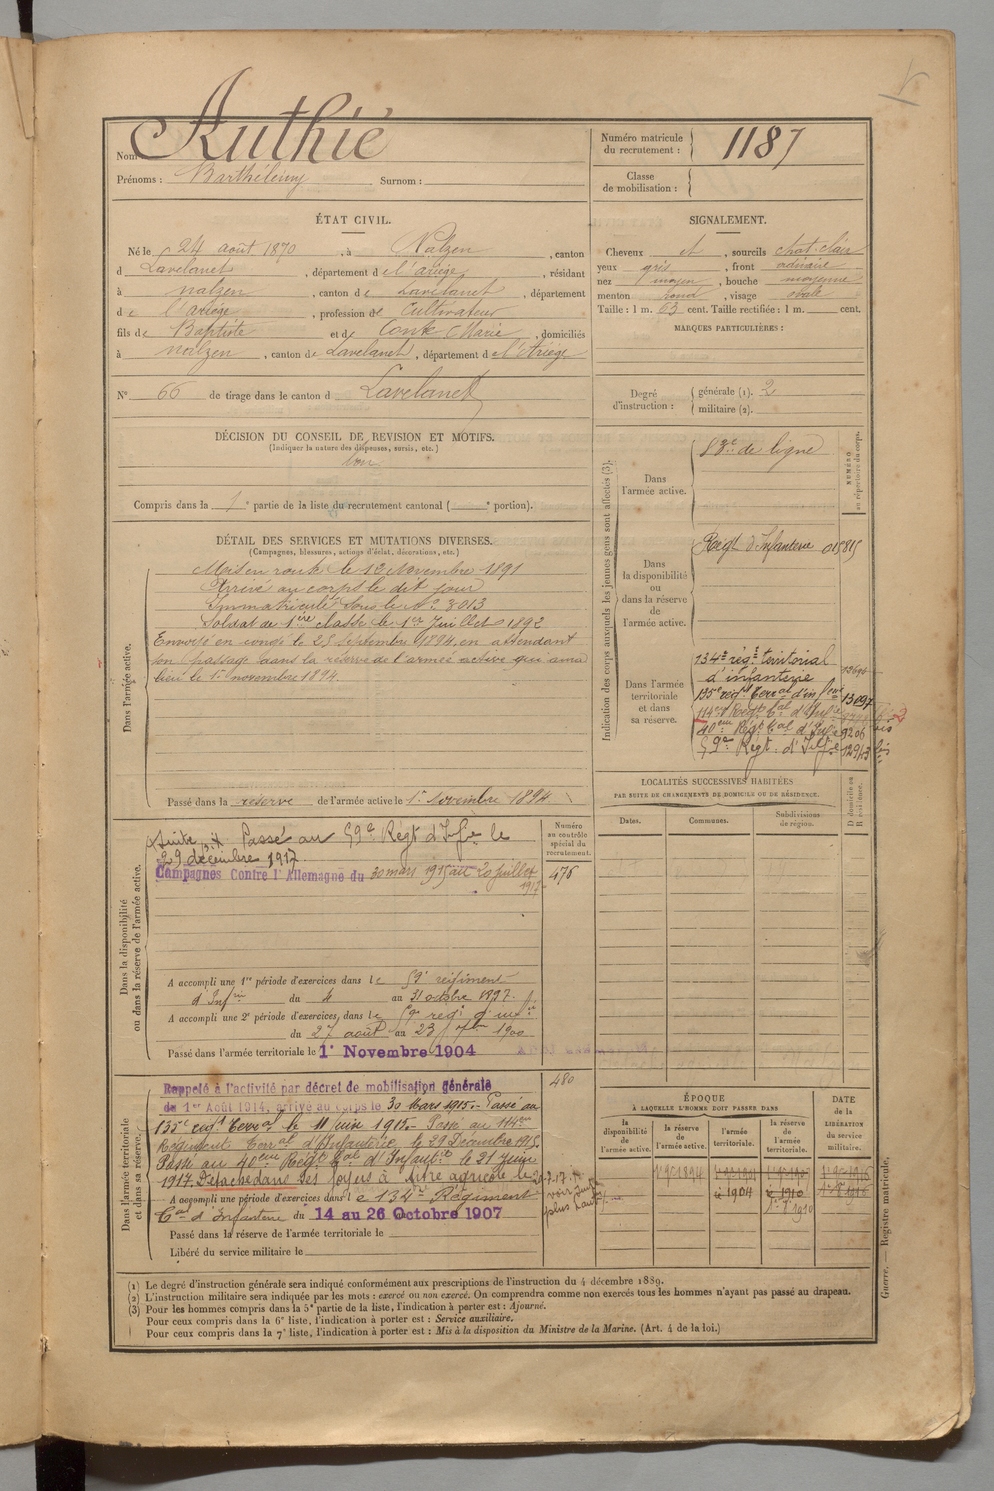 Nom Authié
Prénoms : Barthélemy Surnom :
Numéro matricule du recrutement : 1187
Classe de mobilisation :
ÉTAT CIVIL.
Né le 24 août 1870, à Nalzen, canton
d Lavelanet, département de l'ariège, résidant
à nalzen, canton de Lavelanet, département
de l'ariége, profession de Cultivateur
fils de Baptiste et de Conte Marie, domiciliés
à nalzen, canton de Lavelanet, département d el'Ariége
N° 66 de tirage dans le canton d Lavelanet
SIGNALEMENT.
Cheveux et, sourcils chat. clair
yeux gris, front ordinaire
nez moyen, bouche moyenne
menton rond, visage ovale
Taille : 1 m. 63 cent. Taille rectifiée : 1 m. cent.
MARQUES PARTICULIÈRES :
Degré d'instruction : générale (1). 2
militaire (2).
DÉCISION DU CONSEIL DE REVISION ET MOTIFS.
(Indiquer la nature des dispenses, sursis, etc.)
bon
Compris dans la 1e partie de la liste du recrutement cantonal ( e portion).
DÉTAIL DES SERVICES ET MUTATIONS DIVERSES.
(Campagnes, blessures, actions d'éclat, décorations, etc.)
Dans l'armée active.
Mis en route le 12 Novembre 1891
Arrivé au corps le dit jour
Immatriculé sous le N° 3013
Soldat de 1ère classe le 1er Juillet 1892
Envoyé en congé le 25 Septembre 1894, en attendant
son passage dans la réserve de l'armée active qui a eu
lieu le 1er novembre 1894.
Passé dans la réserve de l'armée active le 1er novembre 1894
Indication des corps auxquels les jeunes gens sont affectés (3).
NUMÉRO au répertoire du corps.
Dans l'armée active.
83e de ligne
Dans la disponibilité ou dans la réserve de l'armée active.
Régt d'Infanterie 015815
Dans l'armée territoriale et dans sa réserve.
134e rég.t territorial
d'infanterie
135e régt Terral d'infrie 13097
114ème Régt Tal d'Infie
40ème Régt Tal d'Infie 9206 bis
59e Régt d'Infie 12943 bis
LOCALITÉS SUCCESSIVES HABITÉES
PAR SUITE DE CHANGEMENTS DE DOMICILE OU DE RÉSIDENCE.
Dates. Communes. Subdivisions de région. D domicile ou R résidence.
Dans la disponibilité ou dans la réserve de l'armée active.
Suite Passé au 59e Régt d'Infie le
29 décembre 1917
Campagnes Contre l'Allemagne du 30 mars 1915 au 20 juillet
1917
Numéro au contrôle spécial du recrutement.
476
A accompli une 1re période d'exercices dans le 59e régiment
d'Infrie du 4 au 31 octobre 1897.
A accompli une 2e période d'exercices dans le 59e regt d'infie
du 27 août au 23 7bre 1900
Passé dans l'armée territoriale le 1er Novembre 1904
Dans l'armée territoriale et dans sa réserve.
480
Rappelé à l'activité par décret de mobilisation générale
du 1er Août 1914, arrivé au corps le 30 Mars 1915. Passé au
135e régt Terral le 11 juin 1915. Passé au 114ème
Régiment Terral d'Infanterie le 29 Décembre 1915.
Passé au 40ème Régt Tal d'Infantie le 21 Juin
1917. Détaché dans ses foyers à titre agricole le 20-7-17.
voir suite plus haut
A accompli une période d'exercices dans le 134e Régiment
Tal d'Infanterie du 14 au 26 Octobre 1907
Passé dans la réserve de l'armée territoriale le
Libéré du service militaire le
ÉPOQUE
À LAQUELLE L'HOMME DOIT PASSER DANS
la disponibilité de l'armée active. la réserve de l'armée active. l'armée territoriale. la réserve de l'armée territoriale.
DATE de la LIBÉRATION du service militaire.
1er 9e 1894
1904 1910
1er 8e 1910
(1) Le degré d'instruction générale sera indiqué conformément aux prescriptions de l'instruction du 4 décembre 1889.
(2) L'instruction militaire sera indiquée par les mots : exercé ou non exercé. On comprendra comme non exercés tous les hommes n'ayant pas passé au drapeau.
(3) Pour les hommes compris dans la 5e partie de la liste, l'indication à porter est : Ajourné.
Pour ceux compris dans la 6e liste, l'indication à porter est : Service auxiliaire.
Pour ceux compris dans la 7e liste, l'indication à porter est : Mis à la disposition du Ministre de la Marine. (Art. 4 de la loi.)
Guerre. — Registre matricule.